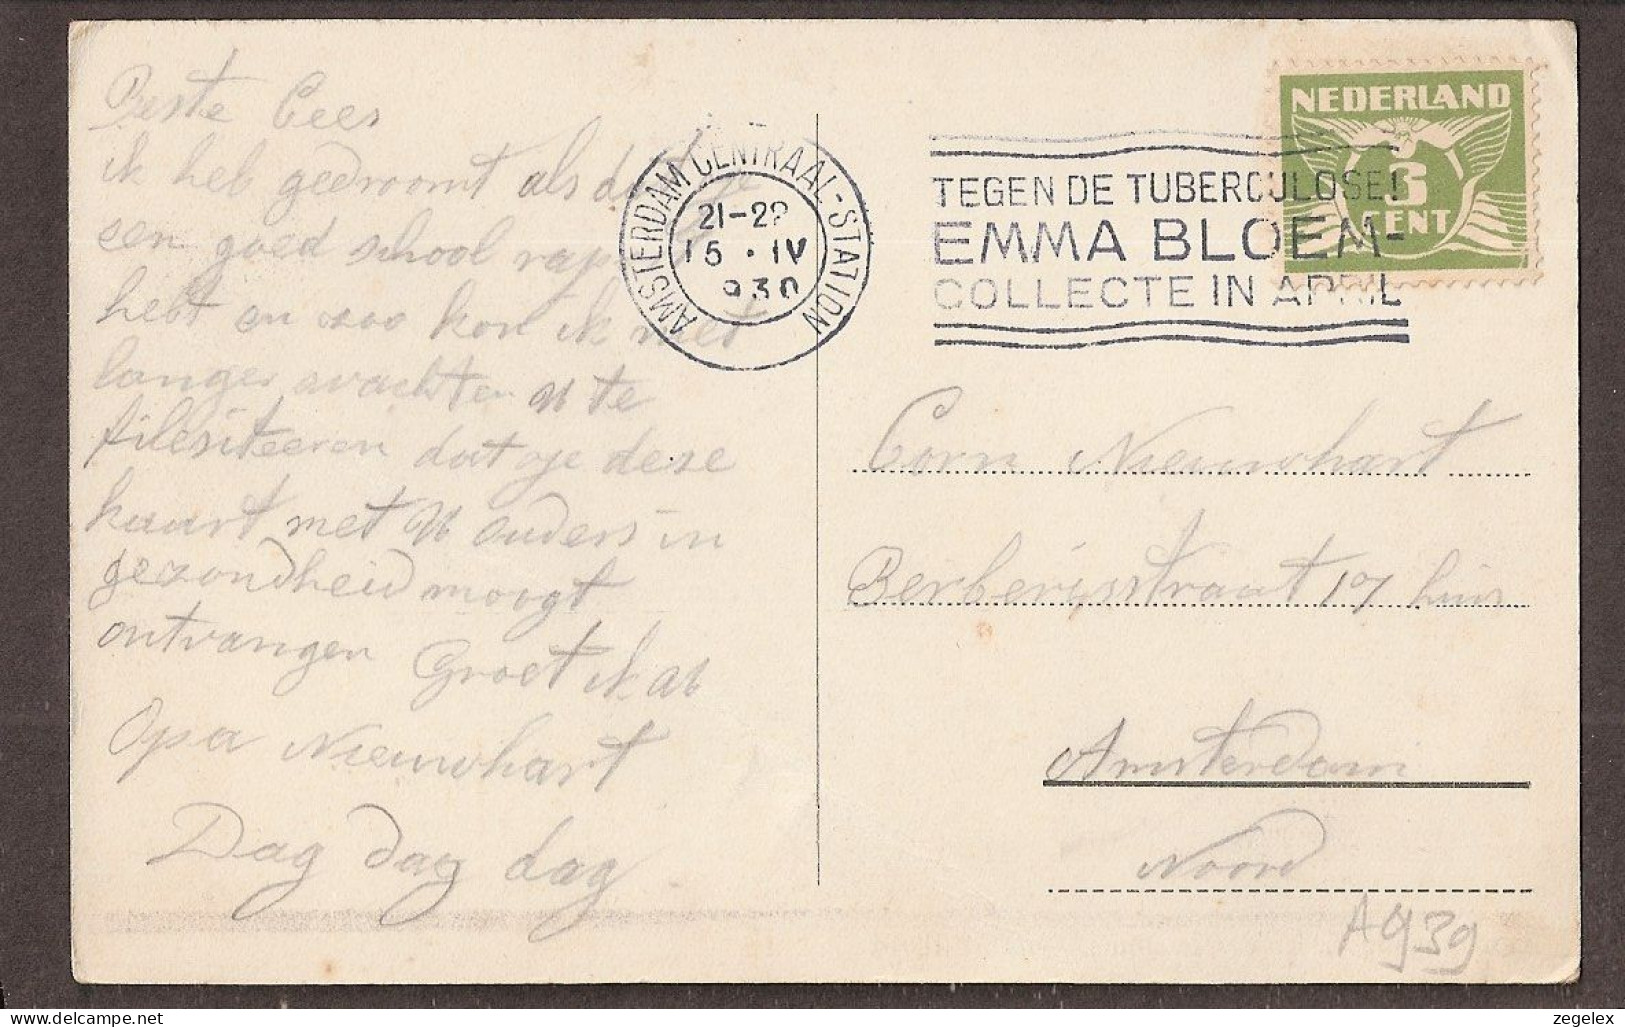 Beste Cees
ik heb gedroomt als dat je
een goed school rapport
hebt en zoo kon ik niet
langer wachten U te
filesiteeren dat je deze
kaart met U ouders in
gezondheid moogt
ontvangen Groet ik als
Opa Nieuwhart
Dag dag dag
AMSTERDAM CENTRAAL-STATION
21-22
15 . IV
930
TEGEN DE TUBERCULOSE!
EMMA BLOEM-
COLLECTE IN APRIL
NEDERLAND
3
CENT
Corn Nieuwhart
Berberisstraat 17 huis
Amsterdam
Noord
A939
zegelex